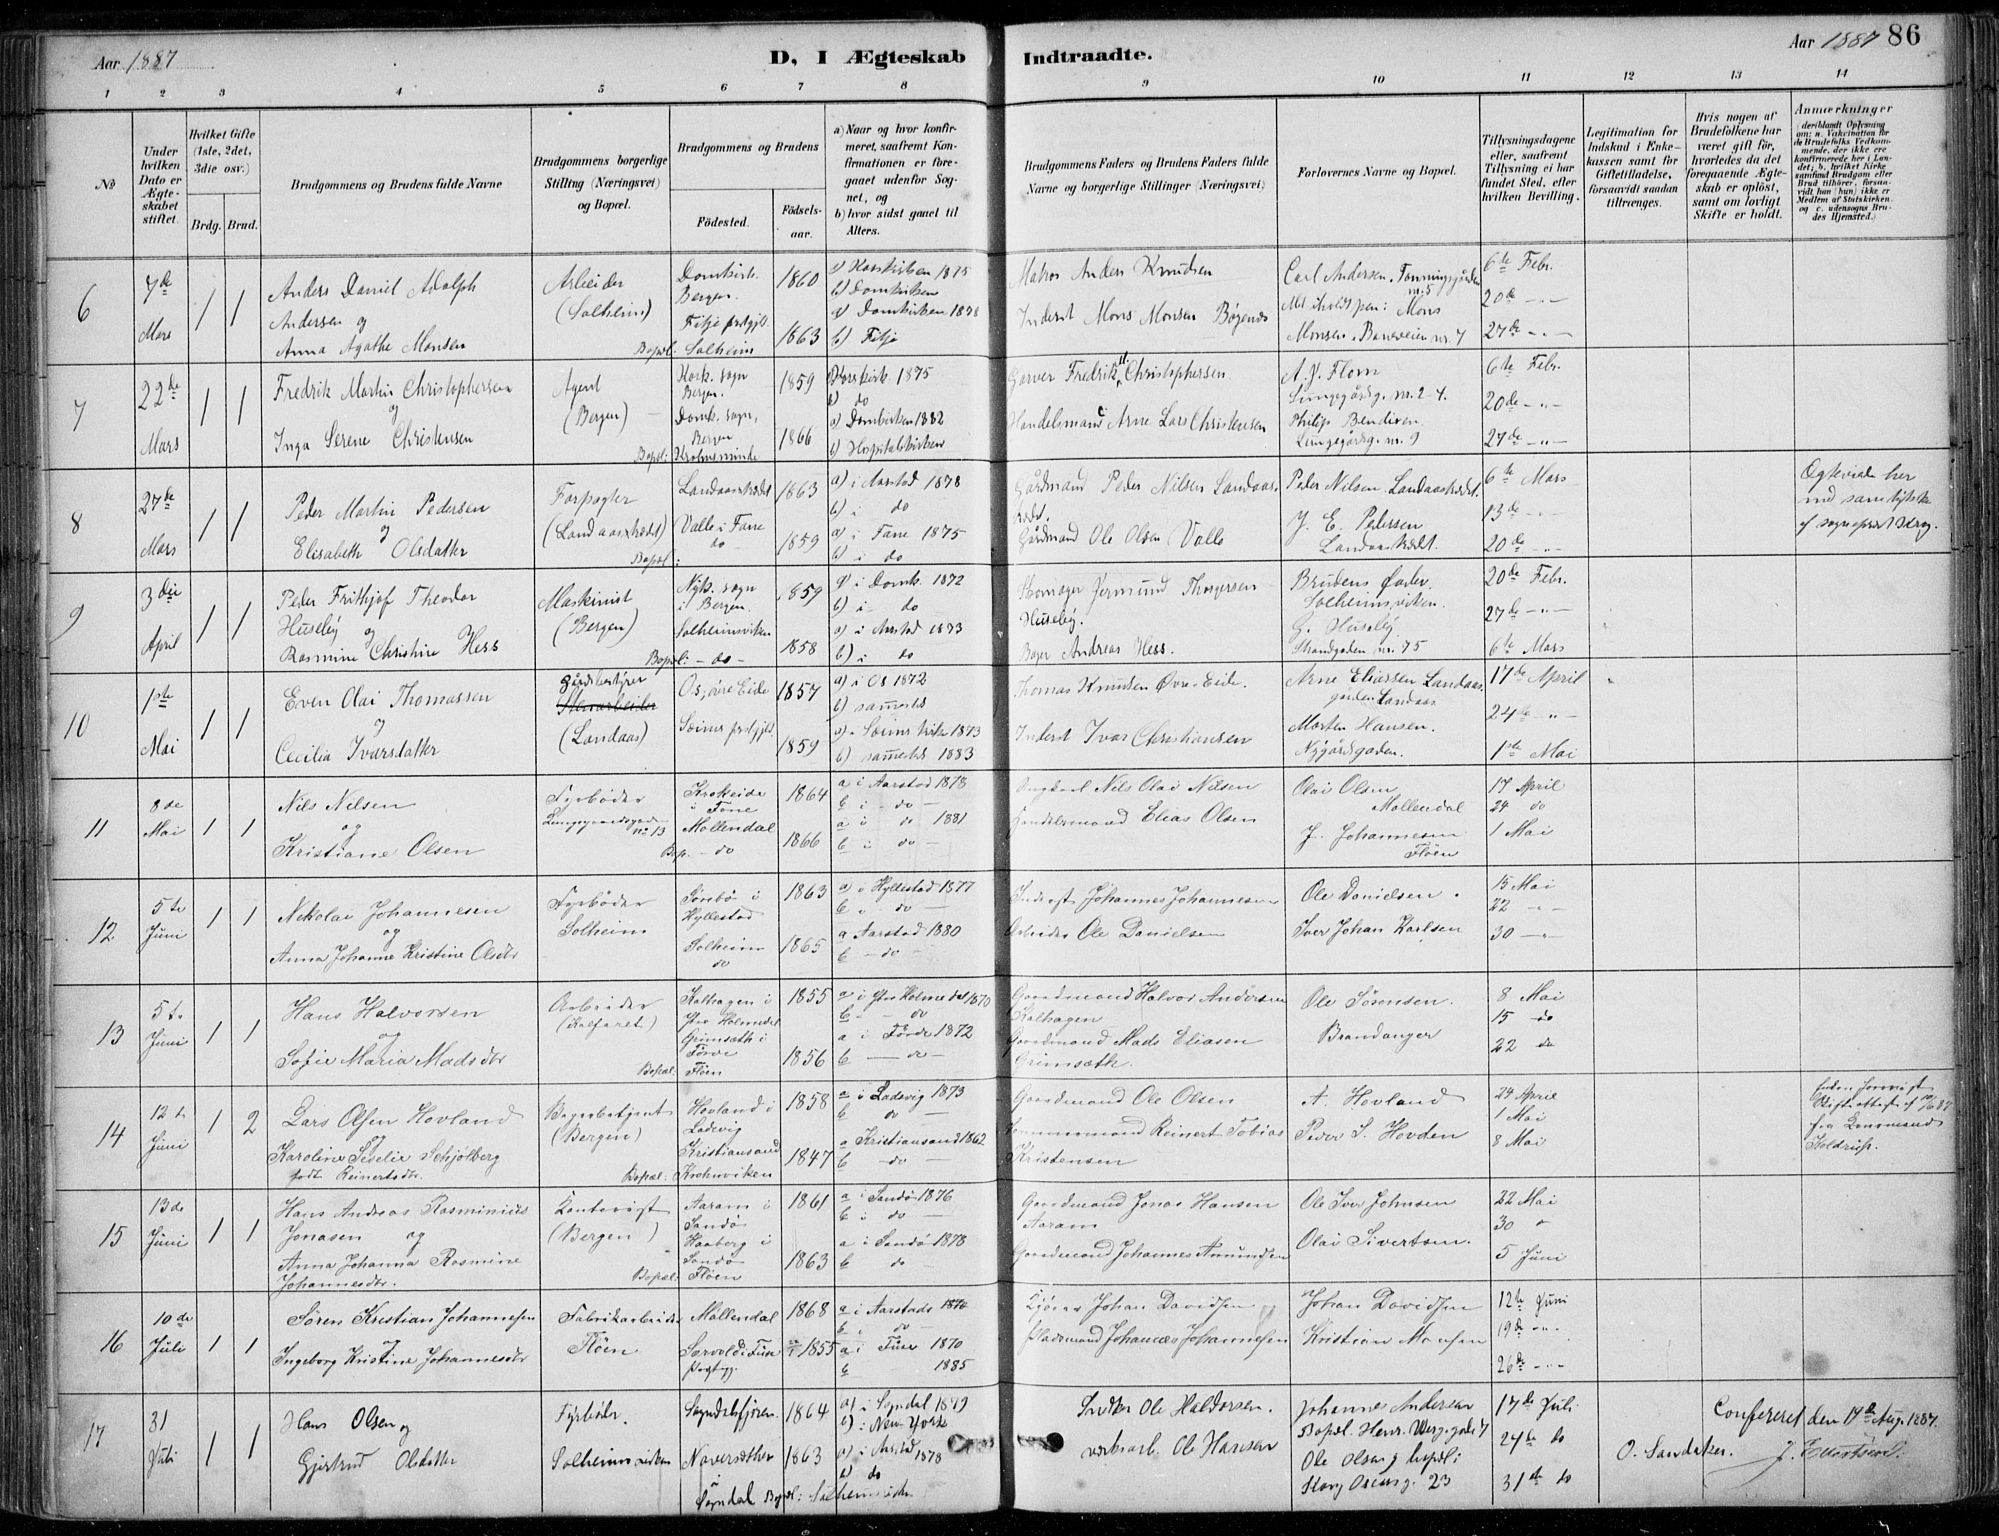 Aar 1887
D, I Ægteskab Indtraadte.
Aar 1887 86
1 2 3 4 5 6 7 8 9 10 11 12 13 14
No
Under hvilken Dato er Ægteskabet stiftet.
Hvilket Gifte (1ste, 2det, 3die osv.)
Brdg. Brud.
Brudgommens og Brudens fulde Navne
Brudgommens borgerlige Stilling (Næringsvei) og Bopæl.
Brudgommens og Brudens
Födested.
Födsels-aar.
a) Naar og hvor konfirmeret, saafremt Konfirmationen er foregaaet udenfor Sognet, og
b) hvor sidst gaaet til Alters.
Brudgommens Faders og Brudens Faders fulde Navne og borgerlige Stillinger (Næringsvei)
Forlovernes Navne og Bopæl.
Tillysningsdagene eller, saafremt Tillysning ei har fundet Sted, efter hvilken Bevilling.
Legitimation for Indskud i Enkekassen samt for Giftetilladelse, forsaavidt saadan tiltrænges.
Hvis nogen af Brudefolkene har været gift för, hvorledes da det foregaaende Ægteskab er oplöst, samt om lovligt Skifte er holdt.
Anmærkninger
6
7de Mars
1 1
Anders Daniel Adolph
Andersen og
Anna Agathe Monsen
Arbeider
(Solheim)
Domkirk.
Bergen.
Fitje prstgjl.
Bopæl: Solheim
1860
1863
a) Korskirken 1875
b) Domkirken
a) Domkirken 1878
b) Fitje
Matros Anders Knudsen
Inderst Mons Monsen
Carl Andersen,
nr. 5
Mons
Monsen, nr. 7
6te Febr.
20de -"-
27de -"-
7
22de Mars
1 1
Fredrik Martin Christophersen
og
Inga Serene Christensen
Agent
(Bergen)
Kork. sogn
Bergen.
Domk. sogn,
Bergen
Bopæl: Kronesminde
1859
1866
Korskirk. 1875
b) do
a) Domkirken 1882
b) Hospitalskirken
Garver Fredrik Christophersen
Handelsmand Arne Lars Christensen
A. J. Flom
Lungegårdsg. nr. 2-4.
Philip Bendixen.
Lungegårdsg. nr. 9
6te Febr.
20de -"-
27de -"-
8
27de Mars
1 1
Peder Martin Pedersen
og
Elisabeth Olsdatter
Forpagter
(Landaasstrædet)
Landaasstrædet
Valle i Fane
Bopæl: do
1863
1859
a) i Aarstad 1878
b) i do
a) i Fane 1875
b) i do
Gårdmand Peder Nilsen Landaas
Gårdmand Ole Olsen Valle
Peder Nilsen. Landaasstrædet.
J. E. Pedersen
Landaasstrædet.
6te Mars
13de -"-
20de -"-
Ægteviede her
med samtykke
af sogneprest
9
3die April
1 1
Peder Frithjof Theodor
Huseby og
Rasmine Christine Hess
Maskinist
(Bergen)
Nyk. sogn
i Bergen.
Solheimsviken
Bopæl: - do -
1859
1858
a) i Domk. 1872
b) i do
a) i Aarstad 1873
b) i do
Skomager Jermund Thorgersen
Huseby.
Bager Andreas Hess.
Brudens Fader.
Solheimsviken.
G. Huseby
Strandgaden nr. 75
20de Febr.
27de -"-
6te Mars
10
1ste Mai
1 1
Even Olai Thomassen
og
Cecilia Ivarsdatter
Gårdsbestyrer
(Landaas)
Os, övre Eide
prstgjld.
1857
1859
a) i Os 1872
b) sammesteds
1873
b) sammests 1883
Thomas Knudsen Øvre-Eide.
Inderst Ivar Christiansen
Arne Eliassen Landaas
gården Landaas
Morten Hansen.
Nygårdsgaden.
17de April
24de -"-
1ste Mai
11
8de Mai
1 1
Nils Nilsen
og
Kristiane Olsen
Fyrböder
Lungegaardsgaden
No 13
Krokeide
i Fane
Möllendal
Bop. - do
1864
1866
a i Aarstad 1878
b i - do -
a i do 1881
b i do -
Nils Olai Nilsen
Handelsmand Elias Olsen
Olai Olsen
Möllendal
J. Johannesen
Flöen
17 April
24 do
1 Mai
12
5te Juni
1 1
Nikolai Johannesen
og
Anna Johanne Kristine Olsdtr
Fyrböder
Solheim
Sönbö i
Hyllestad
Solheim
do
1863
1865
a) i Hyllestad 1877
b i - do -
a Aarstad 1880
b - do -
Inderst Johannes Johannesen
Arbeider Ole Danielsen
Ole Danielsen.
Iver Johan Karlsen
15 Mai
22 -"-
30 -"-
13
5te Juni
1 1
Hans Halvorsen
og
Sofie Maria Madsdtr
Arbeider
(Kalfaret)
Kalhagen i
Ytre Holmedal
Grimsæth i
Förde
Bopæl: Flöen
1855
1856
a i Ytre Holmedal 1870
b - do
a i Förde 1872
b - do -
Gaardmand Halvor Andersen
Kalhagen
Gaardmand Mads Eliasen
Grimsæth.
Ole Sörensen.
Brandanger
8 Mai
15 do
22 do
14
12te Juni
1 2
Lars Olsen Hovland
og
Karoline Seselie Schjölberg
födt Reinertsdtr.
(Bergen)
Hovland i
Ladevig
Kristiansand
Bopæl: Krohnviken
1858
1847
a i Ladevig 1873
b do -
a Kristiansand 1862
b - do -
Gaardmand Ole Olsen
Reinert Tobias
Kristensen
A. Hovland
Peder S. Hovden
24 April
1 Mai
8 Mai
fra Lensmand
Koldrup.
15
13de Juni
1 1
Hans Andreas Rasminius
Jonasen og
Anna Johanna Rasmine
Johannesdtr.
Kontorist
(Bergen)
Aaram i
Sandö
Haaberg i
Sandö
Bopæl: Flöen
1861
1863
a i Sandö 1876
b i do -
a i Sandö 1878
b do -
Gaardmand Jonas Hansen
Aaram
Gaardmand Johannes Amundsen
Ole Iver Johnsen
Olai Sivertsen.
22 Mai
30 "
5 Juni
16
10de Juli
1 1
Sören Kristian Johannesen
og
Ingeborg Kristine Johannesdtr
Fabrikarbeider
Flöen.
Möllendal
Sævold i Fuse
Prstgj.
1868
1855
a i Aarstad
b i do
a i Fuse 1870
b 1885
Johan Davidsen
Pladsmand Johannes Johannesen
Johan Davidsen
Kristian Monsen
12te Juni
19de -"-
26de -"-
17
31 Juli
1 1
Hans Olsen og
Gjertrud Olsdatter
Fyrböder.
Solheimsviken
Sogndalsfjören
Naversæther
Sogndal Bopæl: Solheimsviken
1864
1863
a) i Sogndal 1879
b) i New York
a) i Aarstad 1878
b) do
Ole Haldorsen.
Ole Hansen
Johannes Andersen
Bopæl. Henr. Wergs gade 7
Ole Olsen, bopæl:
Kong Oscarsg. 23
17de Juli
24de do
31te do
O. Sandaker.
Confereret den 17de Aug. 1887.